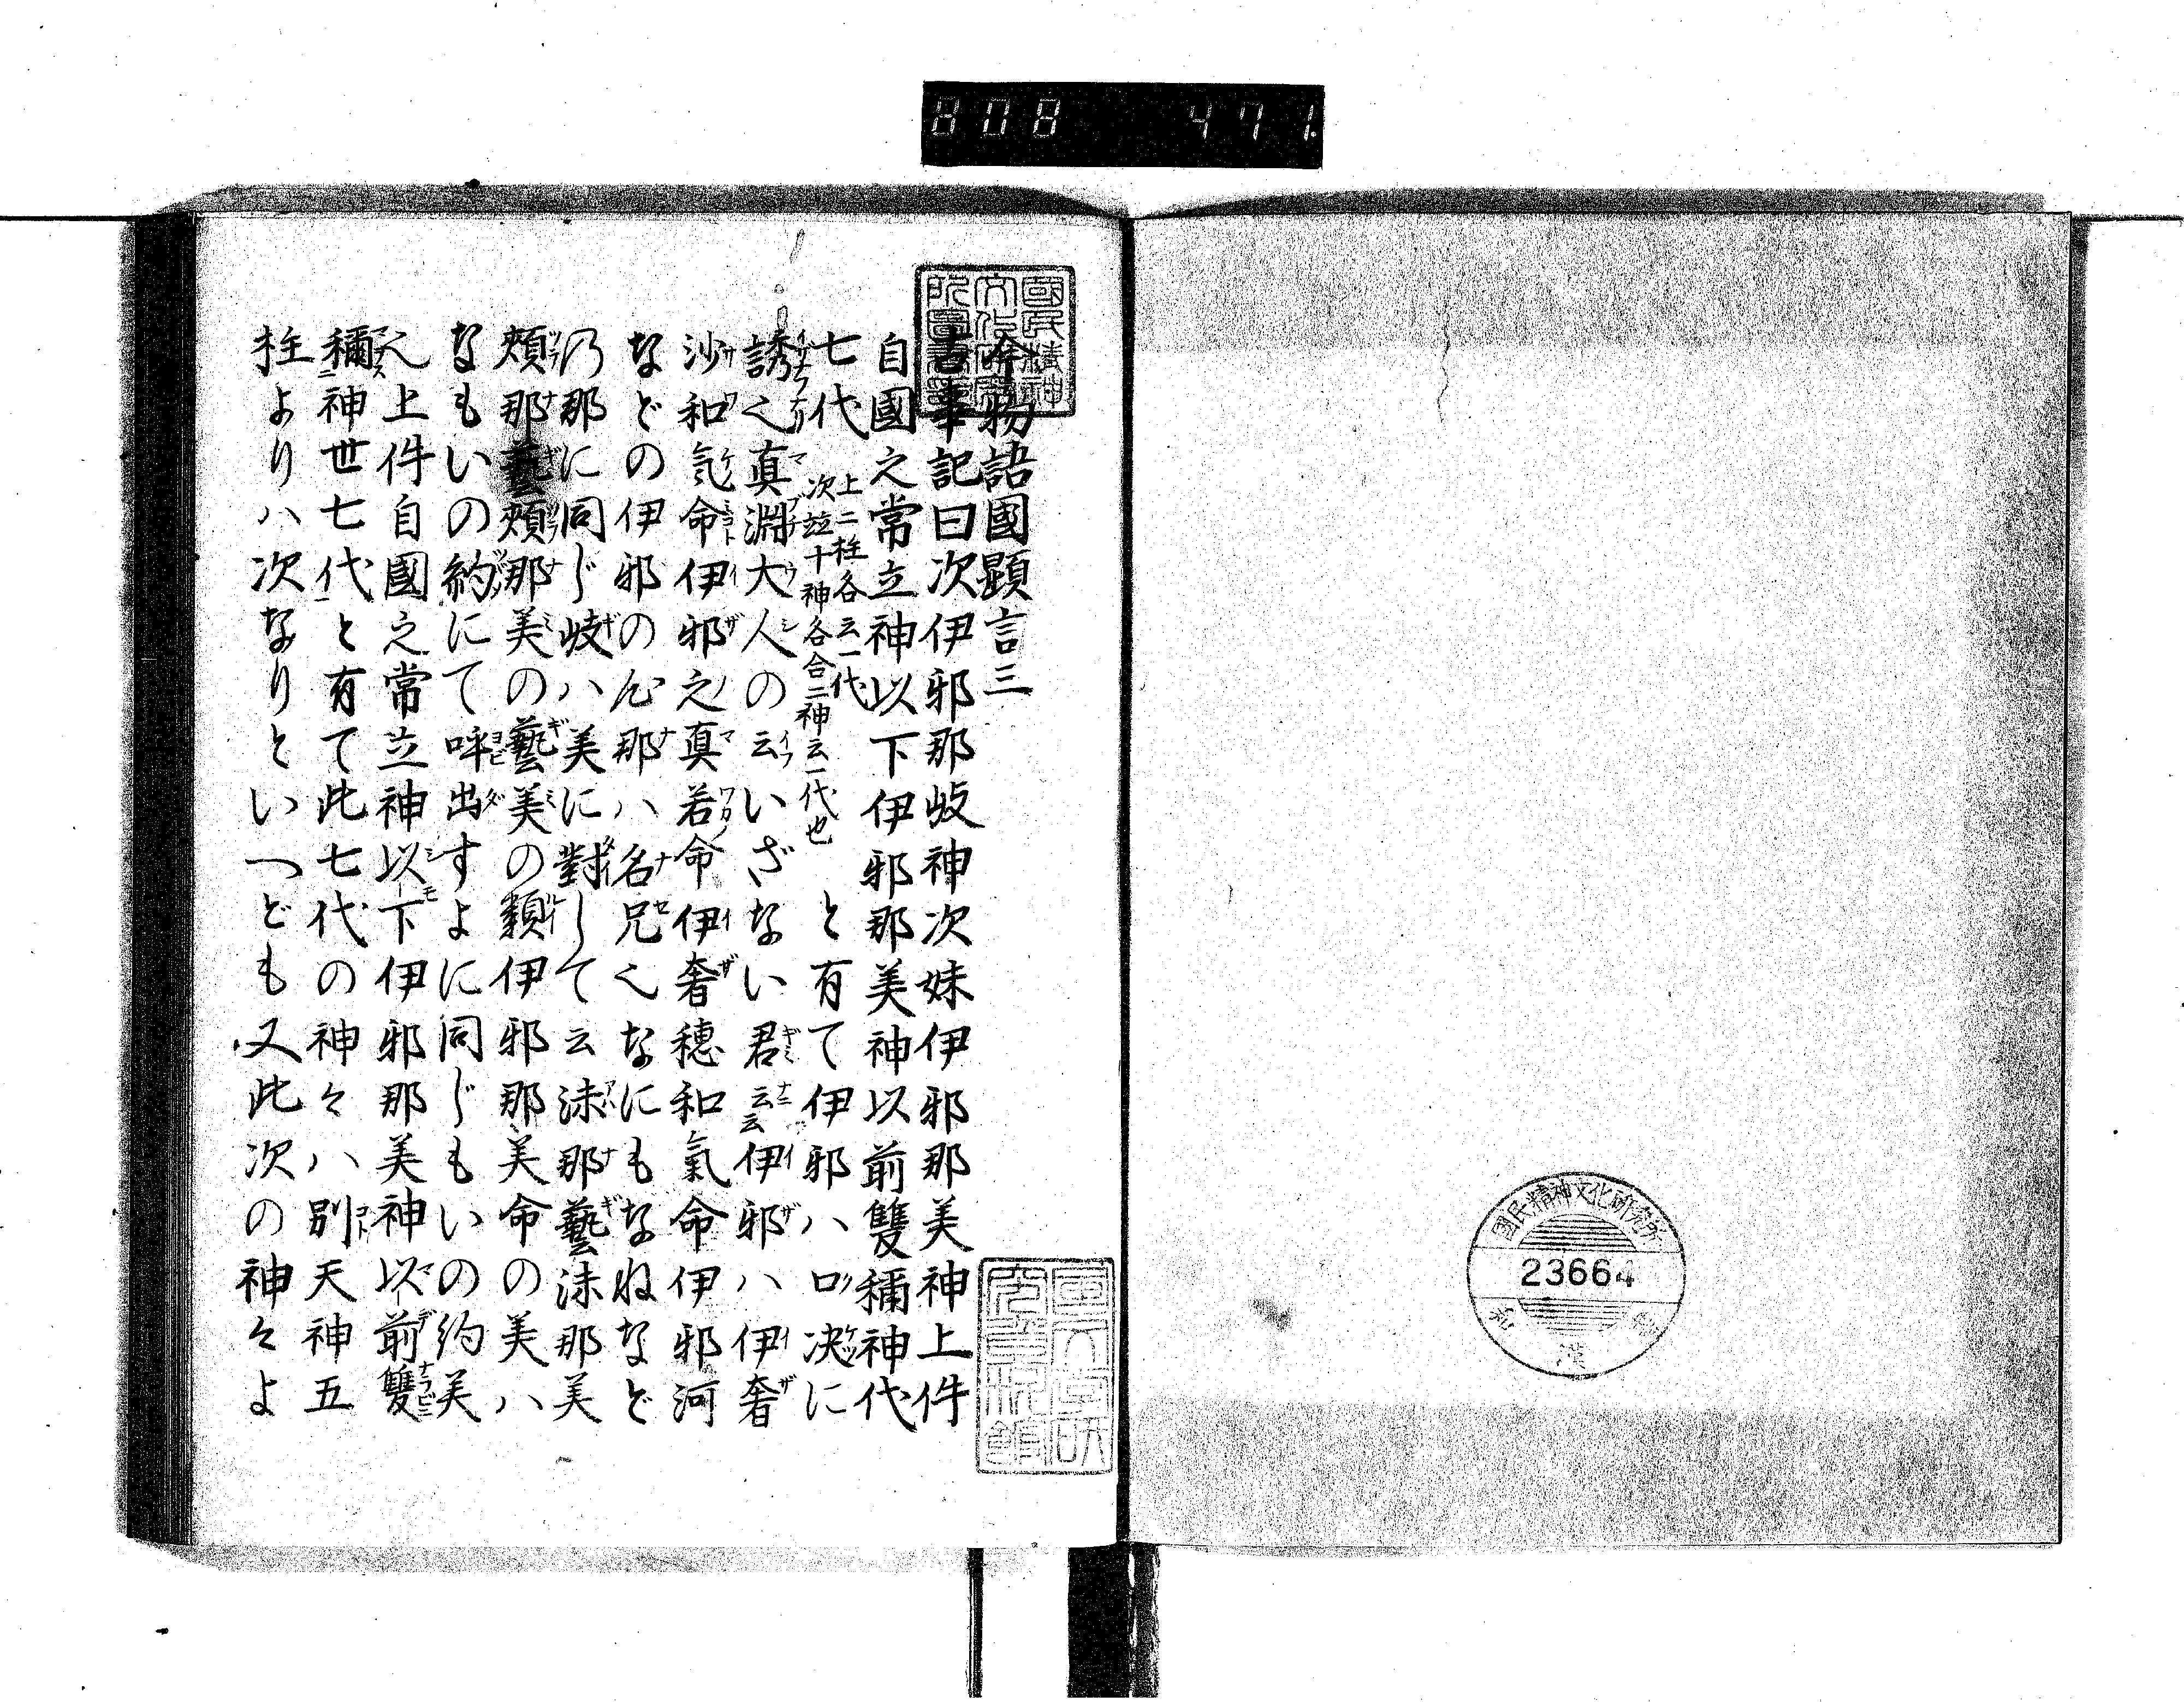 808 471
國民精神文化研究所
23664
物語國顕言三
古事記曰次伊邪那岐神次妹伊邪那美神上件
自國之常立神以下伊邪那美神以前雙稱神代
七代上二柱各云一代次竝十神各合二神云一代也と有て伊邪ハ口决に
誘く真淵大人の云いざない君云云伊邪ハ伊奢
沙和気命伊邪之真若命伊奢穂和氣命伊邪河
などの伊邪の心那ハ名兄くなにもなねなど
乃那に同じ岐ハ美に對して云沫那藝沫那美
頬那藝頬那美の藝美の類伊邪那美命の美ハ
なもいの約にて呼出すよに同じもいの約美
之上件自國之常立神以下伊邪那美神以前雙
稱神世七代と有て此七代の神々ハ別天神五
柱よりハ次なりといへども又此次の神々よ